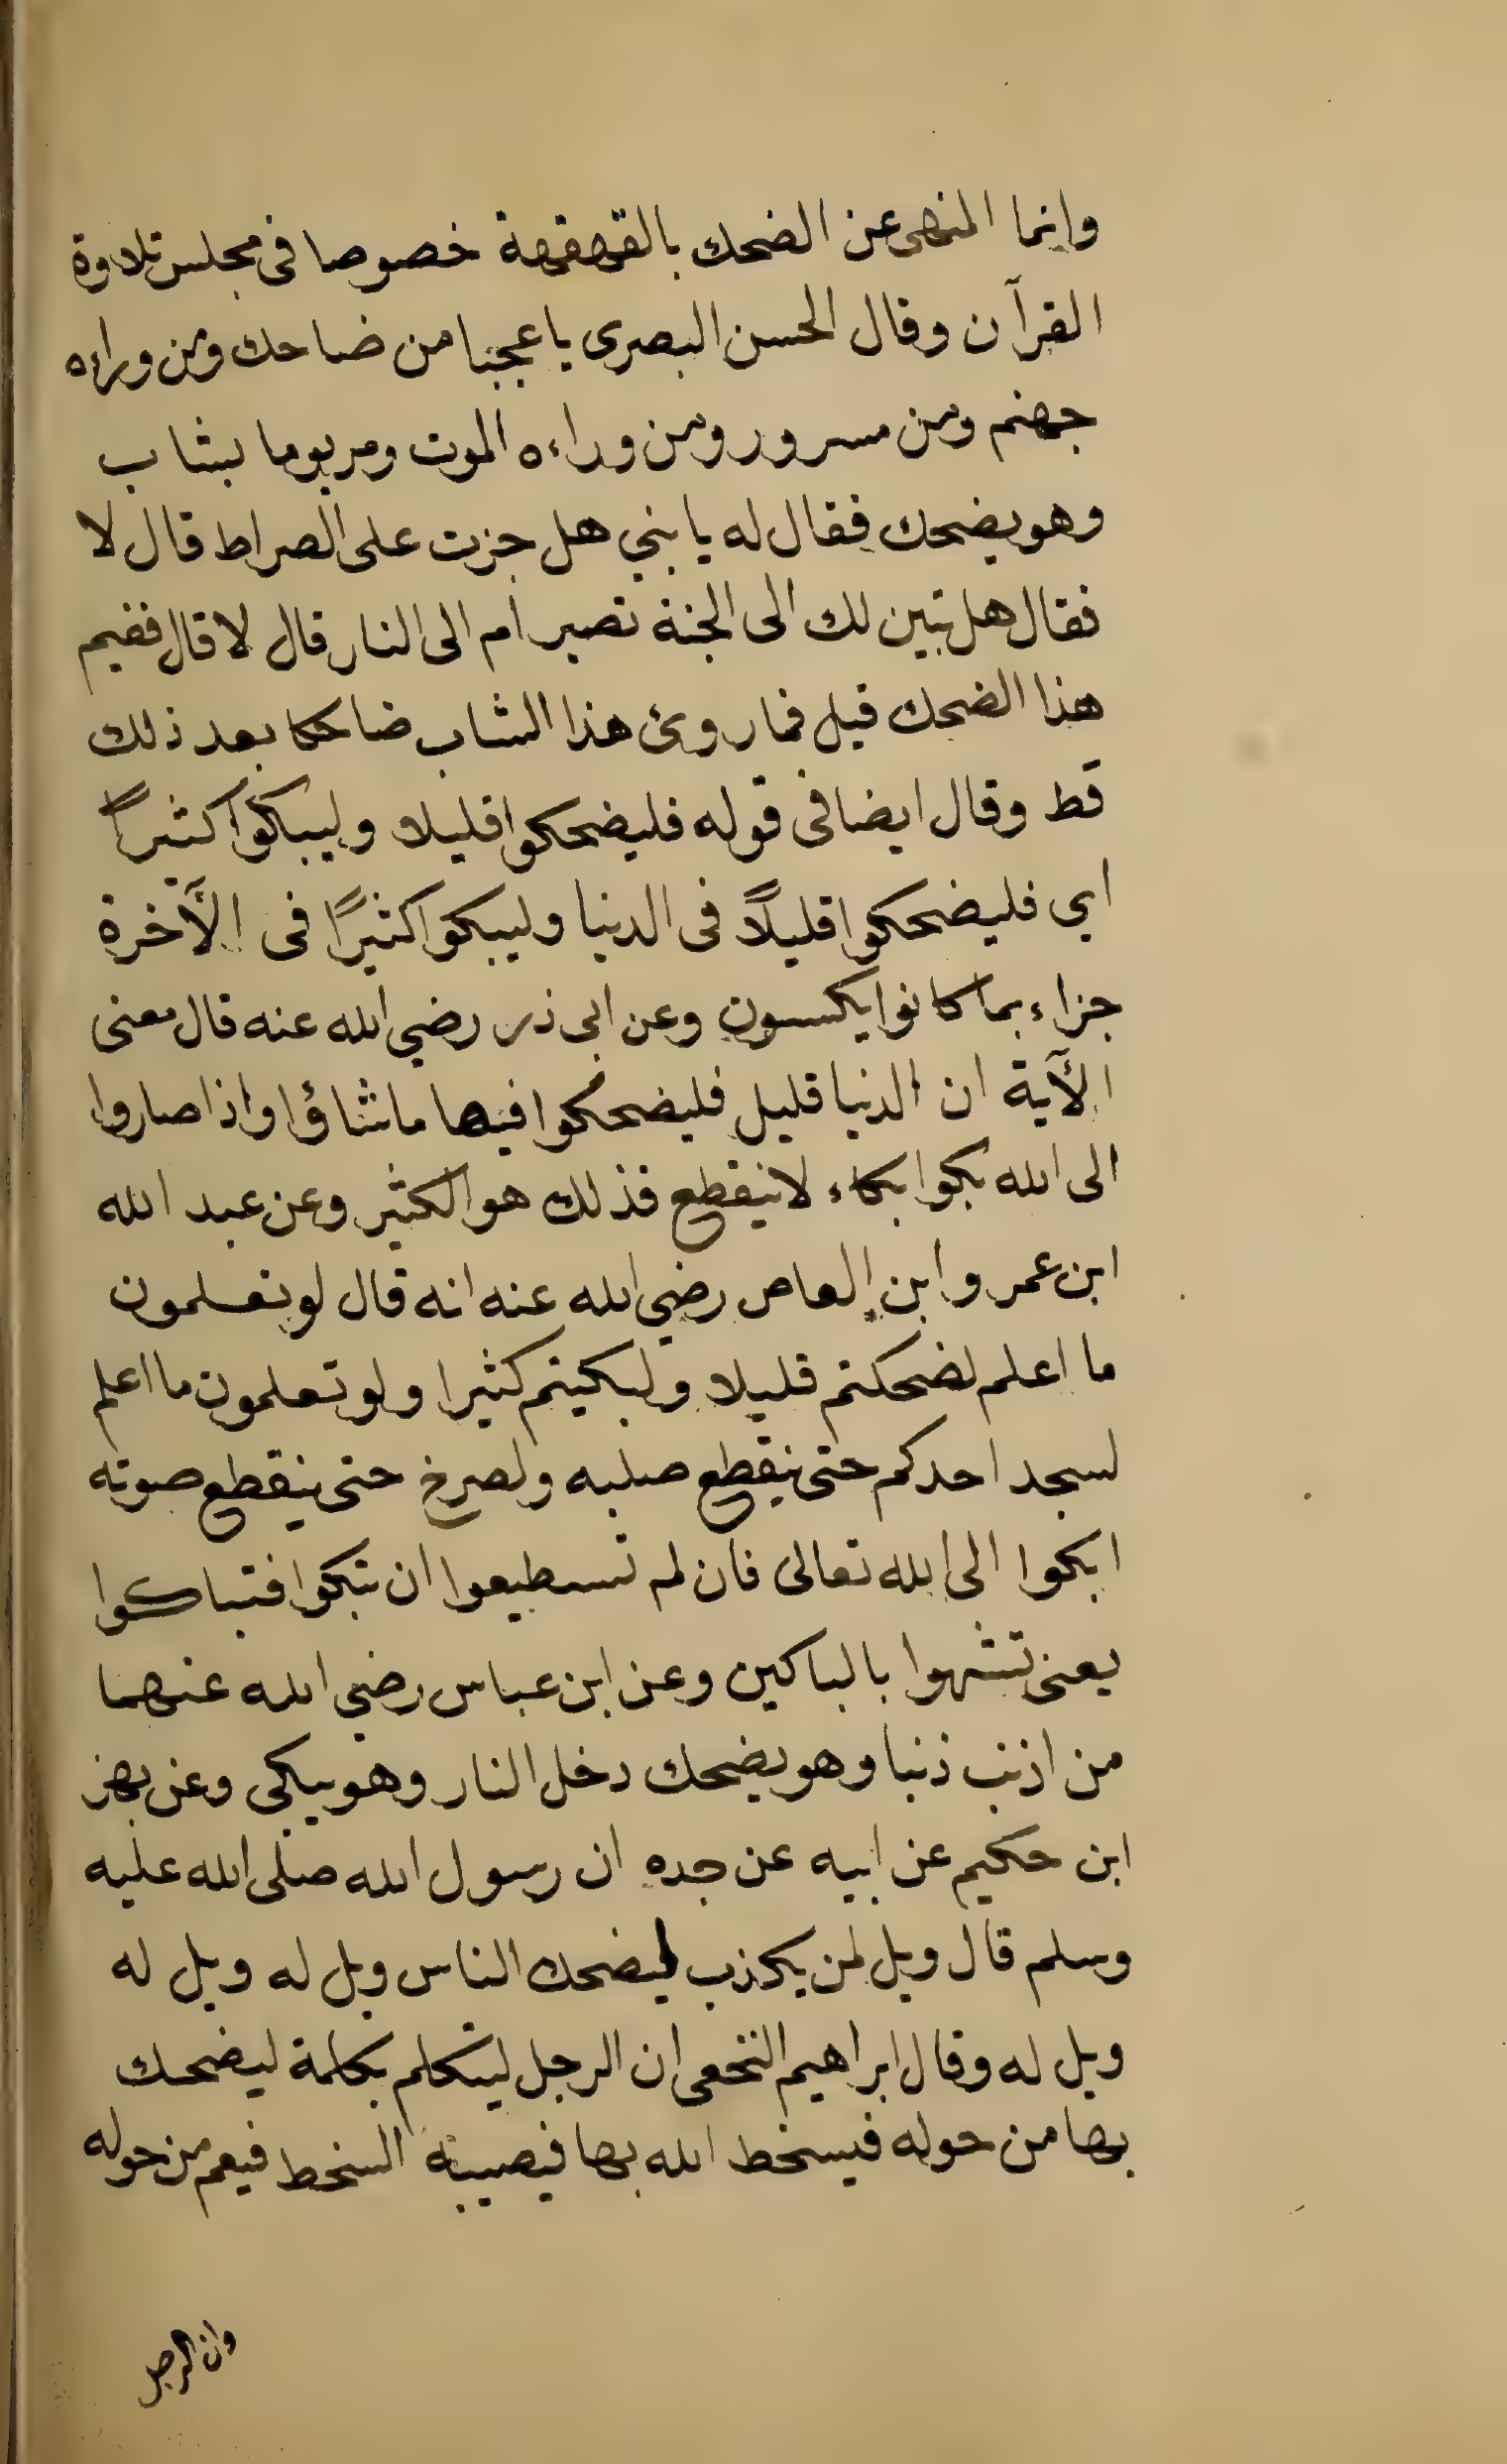 وانما المنهى عن الضحك بالقهقهة خصوصا فى مجلس تلاوة
القرآن وقال الحسن البصرى يا عجبا من ضاحك ومن وراءه
جهنم ومن مسرور ومن وراءه الموت ومر يوما بشاب
وهو يضحك فقال له يا بني هل جزت على الصراط قال لا
فقال هل تبين لك الى الجنة تصير ام الى النار قال لا قال ففيم
هذا الضحك قيل فما روئ هذا الشاب ضاحكا بعد ذلك
قط وقال ايضا فى قوله فليضحكوا قليلا وليبكوا كثيراً
اي فليضحكوا قليلاً فى الدنيا وليبكوا كثيرًا فى الآخرة
جزاء بما كانوا يكسبون وعن ابى ذر رضي الله عنه قال معنى
الآية ان الدنيا قليل فليضحكوا فيها ما شاؤا واذا صاروا
الى الله بكوا بكاء لا ينقطع فذلك هو الكثير وعن عبد الله
ابن عمر وابن العاص رضي الله عنه انه قال لو تعلمون
ما اعلم لضحكتم قليلا ولبكيتم كثيرا ولو تعلمون ما اعلم
لسجد احدكم حتى ينقطع صلبه ولصرخ حتى ينقطع صوته
ابكوا الى الله تعالى فان لم تسطيعوا ان تبكوا فتباكوا
يعنى تشبهوا بالباكين وعن ابن عباس رضي الله عنهما
من اذنب ذنبا وهو يضحك دخل النار وهو يبكى وعن بهز
ابن حكيم عن ابيه عن جده ان رسول الله صلى الله عليه
وسلم قال ويل لمن يكذب ليضحك الناس ويل له ويل له
ويل له وقال ابراهيم النخعى ان الرجل ليتكلم بكلمة ليضحك
بها من حوله فيسخط الله بها فيصيبه السخط فيعم من حوله
وان الرجل